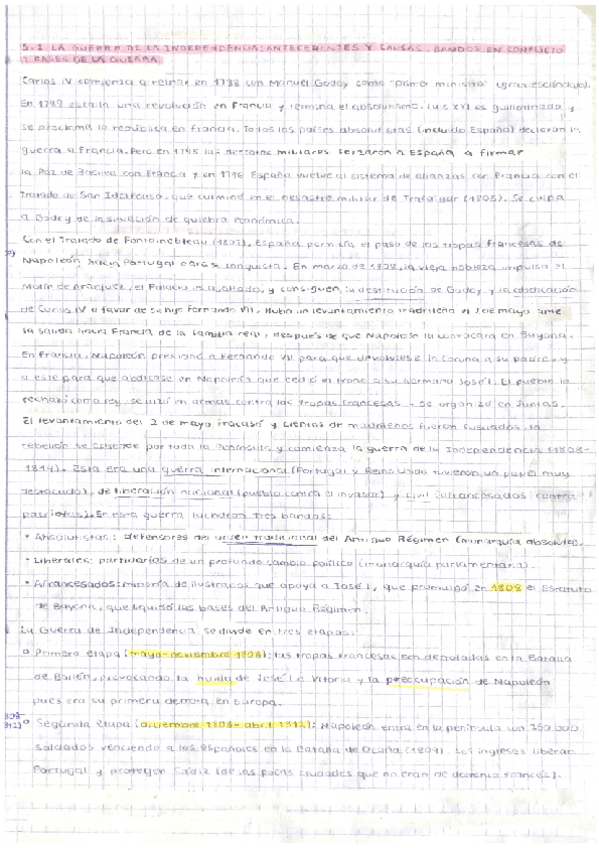 5.1 LA GUERRA DE LA INDEPENDENCIA: ANTECEDENTES Y CAUSAS. BANDOS EN CONFLICTO
Y FASES DE LA GUERRA
Carlos IV comienza a reinar en 1788 con Manuel Godoy como "primer ministro" (gran escándalo).
En 1789 estalla una revolución en Francia y termina el absolutismo. Luis XVI es guillotinado y
se proclama la república en Francia. Todos los países absolutistas (incluido España) declaran la
guerra a Francia. Pero en 1795 las militares forzaron a España a firmar
la Paz de Basilea con Francia y en 1796 España vuelve al sistema de alianzas con Francia con el
Tratado de San Ildefonso, que culminó en el desastre militar de Trafalgar (1805). Se culpa
a Godoy de la situación de quiebra económica.
Con el Tratado de Fontainebleau (1807), España permitía el paso de las tropas francesas de
Napoleón hacia Portugal para su conquista. En marzo de 1808, la vieja nobleza impulsa el
Motín de Aranjuez, el Palacio es asaltado, y consiguen, la destitución de Godoy y la abdicación
de Carlos IV a favor de su hijo Fernando VII. Hubo un levantamiento madrileño el 2 de mayo ante
la salida hacia Francia de la familia real, después de que Napoleón la convocara en Bayona.
En Francia, Napoleón presionó a Fernando VII para que devolviese la corona a su padre, y
a este para que abdicase en Napoleón que cedió el trono a su hermano José I. El pueblo lo
rechazó como rey, se alzó en armas contra las tropas francesas y se organizó en Juntas.
El levantamiento del 2 de mayo fracasó y cientos de madrileños fueron fusilados. La
rebelión se extiende por toda la Península y comienza la guerra de la Independencia (1808-
1814). Esta era una guerra internacional (Portugal y Reino Unido tuvieron un papel muy
destacado), de liberación nacional (pueblo contra el invasor) y civil (afrancesados contra
patriotas). En esta guerra lucharon tres bandos:
• Absolutistas: defensores del orden tradicional del Antiguo Régimen (monarquía absoluta).
• Liberales: partidarios de un profundo cambio político (monarquía parlamentaria).
• Afrancesados: minoría de ilustrados que apoya a José I, que promulgó en 1808 el Estatuto
de Bayona, que liquidó las bases del Antiguo Régimen.
La Guerra de Independencia se divide en tres etapas:
Primera etapa (mayo-noviembre 1808): las tropas francesas son derrotadas en la Batalla
de Bailén, provocando la huida de José I a Vitoria y la preocupación de Napoleón
pues era su primera derrota en Europa.
Segunda etapa (diciembre 1808-abril 1812): Napoleón entra en la península con 250.000
soldados venciendo a los españoles en la Batalla de Ocaña (1809). Los ingleses liberan
Portugal y protegen Cádiz (de las pocas ciudades que no eran de dominio francés).